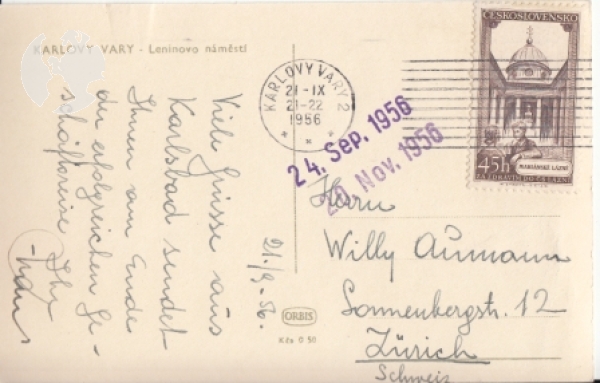 KARLOVY VARY - Leninovo náměstí
Viele Grüsse aus
Karlsbad sendet
Ihnen am Ende
der erfolgreichen Ge-
schäftsreise Ihr
21./9.56.
ORBIS
Kčs 0 50
KARLOVY VARY 2
21-IX
21-22
1956
24. Sep. 1956
Nov. 1956
ČESKOSLOVENSKO
45h
MARIÁNSKÉ LÁZNĚ
ZA ZDRAVÍM DO ČS LÁZNÍ
Herrn
Willy Aumann
Sonnenbergstr. 12
Zürich
Schweiz